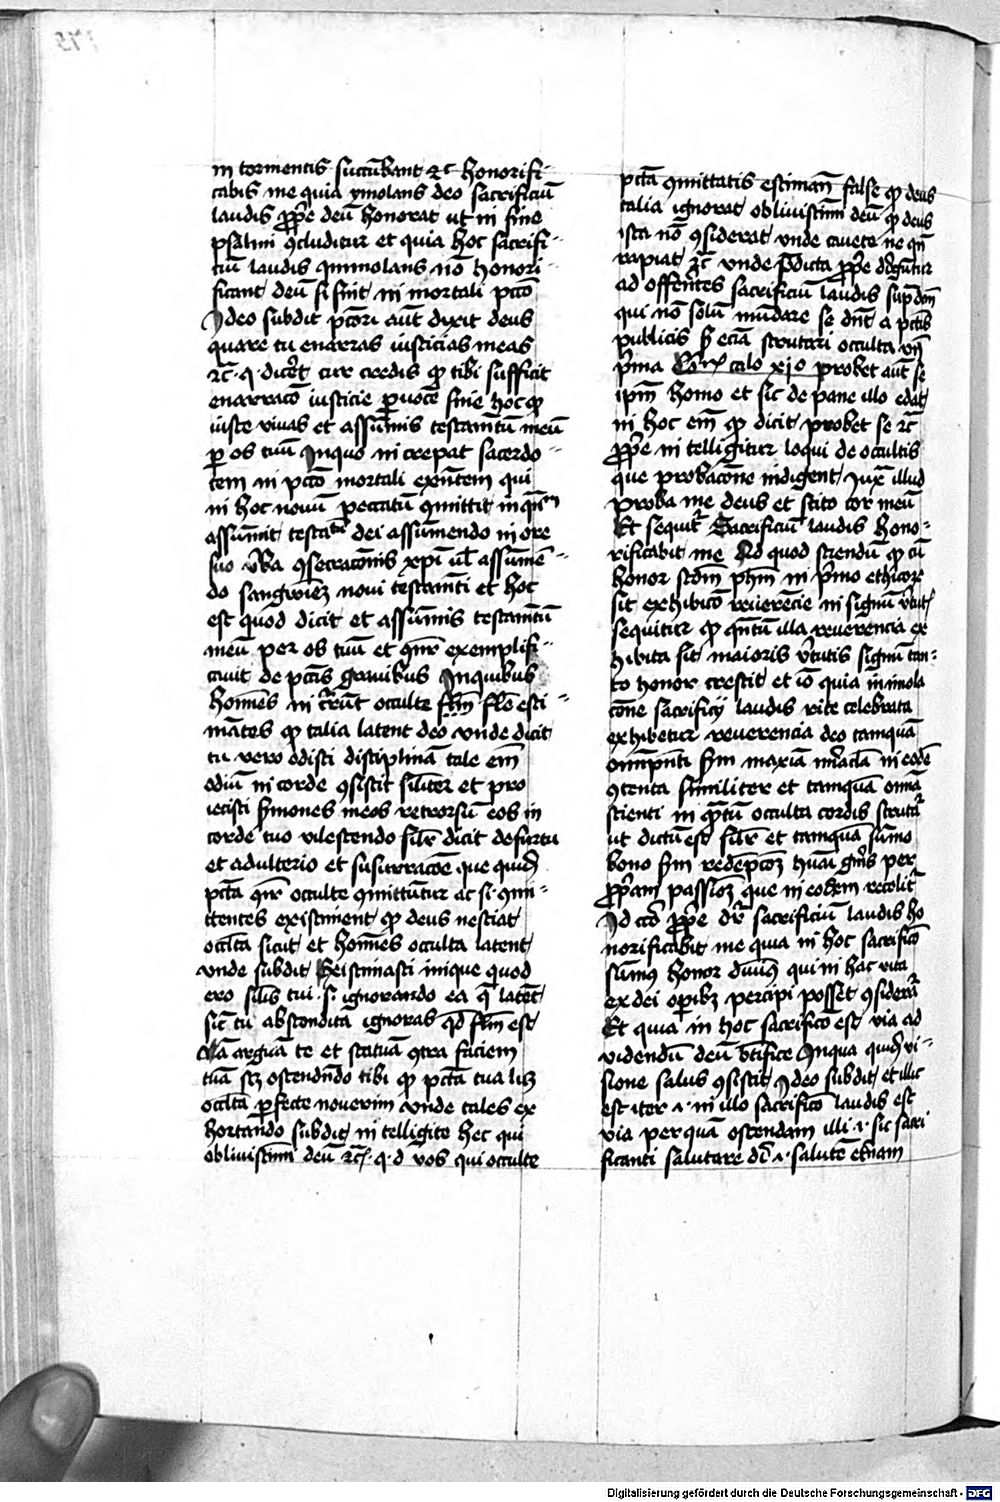 in tormentis succūbant ⁊c honorifi-
cabit me quia ymolans deo sacrificiū
laudis ꝓpͤ e deū honorat ut in fine
psalmi ꝯcluditur et quia hoc sacrifi-
ciū laudis qui immolans nō honori-
ficant deū si sint in mortali pctō
Ideo subdit pctōri aūt dixit deus
quare tu enarras iusticias meas
⁊c̄ .q.diceret cur credis ꝙ tibi sufficit
enarracō iusticie ꝑ uocē sine hoc ꝙ
iuste vivas et assūmis testamētū meū
ꝑ os tuū In quo increpat sacerdo-
tem in pctō mortali existentem qui
in hoc novū peccatū ꝯmittit inquātū
assūmit testamētū dei assūmendo in ore
suo v̄ba ꝯsecracōnis xp̄i ul̄ assūmē-
do sangwinē novi testamēti et hoc
est quod dicit et assūmis testamētū
meū per os tuū et exemplifi-
cavit de pctīs gravibus In quibus
homīes occulte esti-
mātes ꝙ talia latent deo vnde dicit
tu vero odisti disciplinā tale em̄
odiū in corde ꝯsistit silīter et pro
iecisti ſmones meos retrorsū eos in
corde tuo vilescendo silīr dicit de furtu
et adulterio et susurracōe que quidē
pctā occulte ꝯmittūtur ac si ꝯmi-
ttentes existiment ꝙ deus nesciat
occulta sicut et homīes occulta latent
vnde subdit Existimasti inique quod
ero silis tui .s. ignorando ea q̄ latēt
sic tu abscondita ignoras est
argua te et statuā ꝯtra faciem
tuā scꝫ ostendēdo tibi ꝙ pctā tua licꝫ
occulta ꝑfecte noverim vnde tales ex
hortando subdit intelligite hec qui
obliviscimī deū ⁊c̄ .q.d vos qui occulte
pctā ꝯmittatis estiman̄ false ꝙ deus
talia ignorat obliviscimī deū ꝙ deus
ista nō ꝯsiderat vnde cavete ne qn̄
rapiat ⁊c̄ vnde p̄dicta ꝓpͤ e dirigūtur
ad offerētes sacrificiū laudis
qui nō solū mūdare se dn̄t a pctīs
publicis ſꝫ eciā scrutari occulta vn̄
p̄ma Coꝵ calo xjo probet aūt se
ipm̄ homo et sic de pane illo edat
in hoc em̄ ꝙ dicit probet se ⁊c̄
ꝓpͤ e intelligitur loqui de occultis
que probacōne indigent Iux̄ illud
proba me deus et scito cor meū
Et sequit̄ Sacrificiū laudis hono-
rificabit me Ad quod sciendū ꝙ cū
honor scdm̄ phm̄ in p̄mo ethicoꝝ
sit exhibicō reverēcie in signū v̄tutꝭ
sequitur ꝙ qn̄tū illa reverencia ex
hibita sit maioris v̄tutis signū tan-
to honor crescit et iō quia in imola
cōne sacrificij laudis rite celebrata
exhibetur reverencia deo tamquā
om̄ipn̄ti maxīa mīracla in eodē
ꝯtenta similiter et tamquā omīa
scienti in q̄ntū occulta cordis scrutat̄
ut dictū est silīr et tamquā sūmo
bono redēpcōꝫ hūai gn̄is per
ꝓpͥam passionē que in eodem recolit̄
Id cō ꝓpͤ e dr̄ sacrificiū laudis ho
norificabit me quia in hoc sacrificō
sūmus honor divinꝰ qui in hac vita
ex dei opibꝫ percipi posset ꝯsiderat̄
Et quia in hoc sacrificō est via ad
videndū deū b̄tifice In qua quidē vi-
sione salus ꝯsistit Ideo subdit et illic
est iter .i. in illo sacrificō laudis est
via per quā ostendam illi .i. sic sacri
ficanti salutare dī .i. salutē etnam
Digitalisierung gefördert durch die Deutsche Forschungsgemeinschaft - DFG